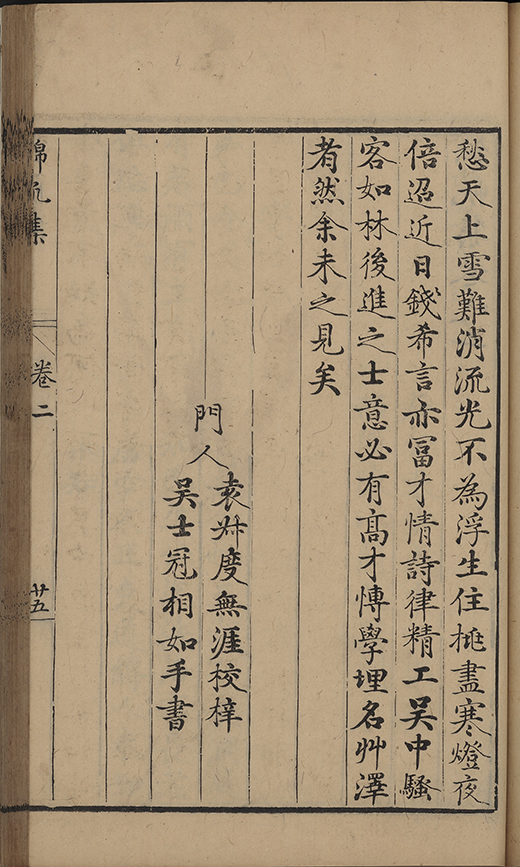 愁天上雪難消流光不為浮生住挑盡寒燈夜
倍迢近日錢希言亦冨才情詩律精工吳中騷
客如林後進之士意必有髙才博學埋名艸澤
者然余未之見矣
門人
袁叔度無涯校梓
吳士冠相如手書
錦帆集
卷二
廿五